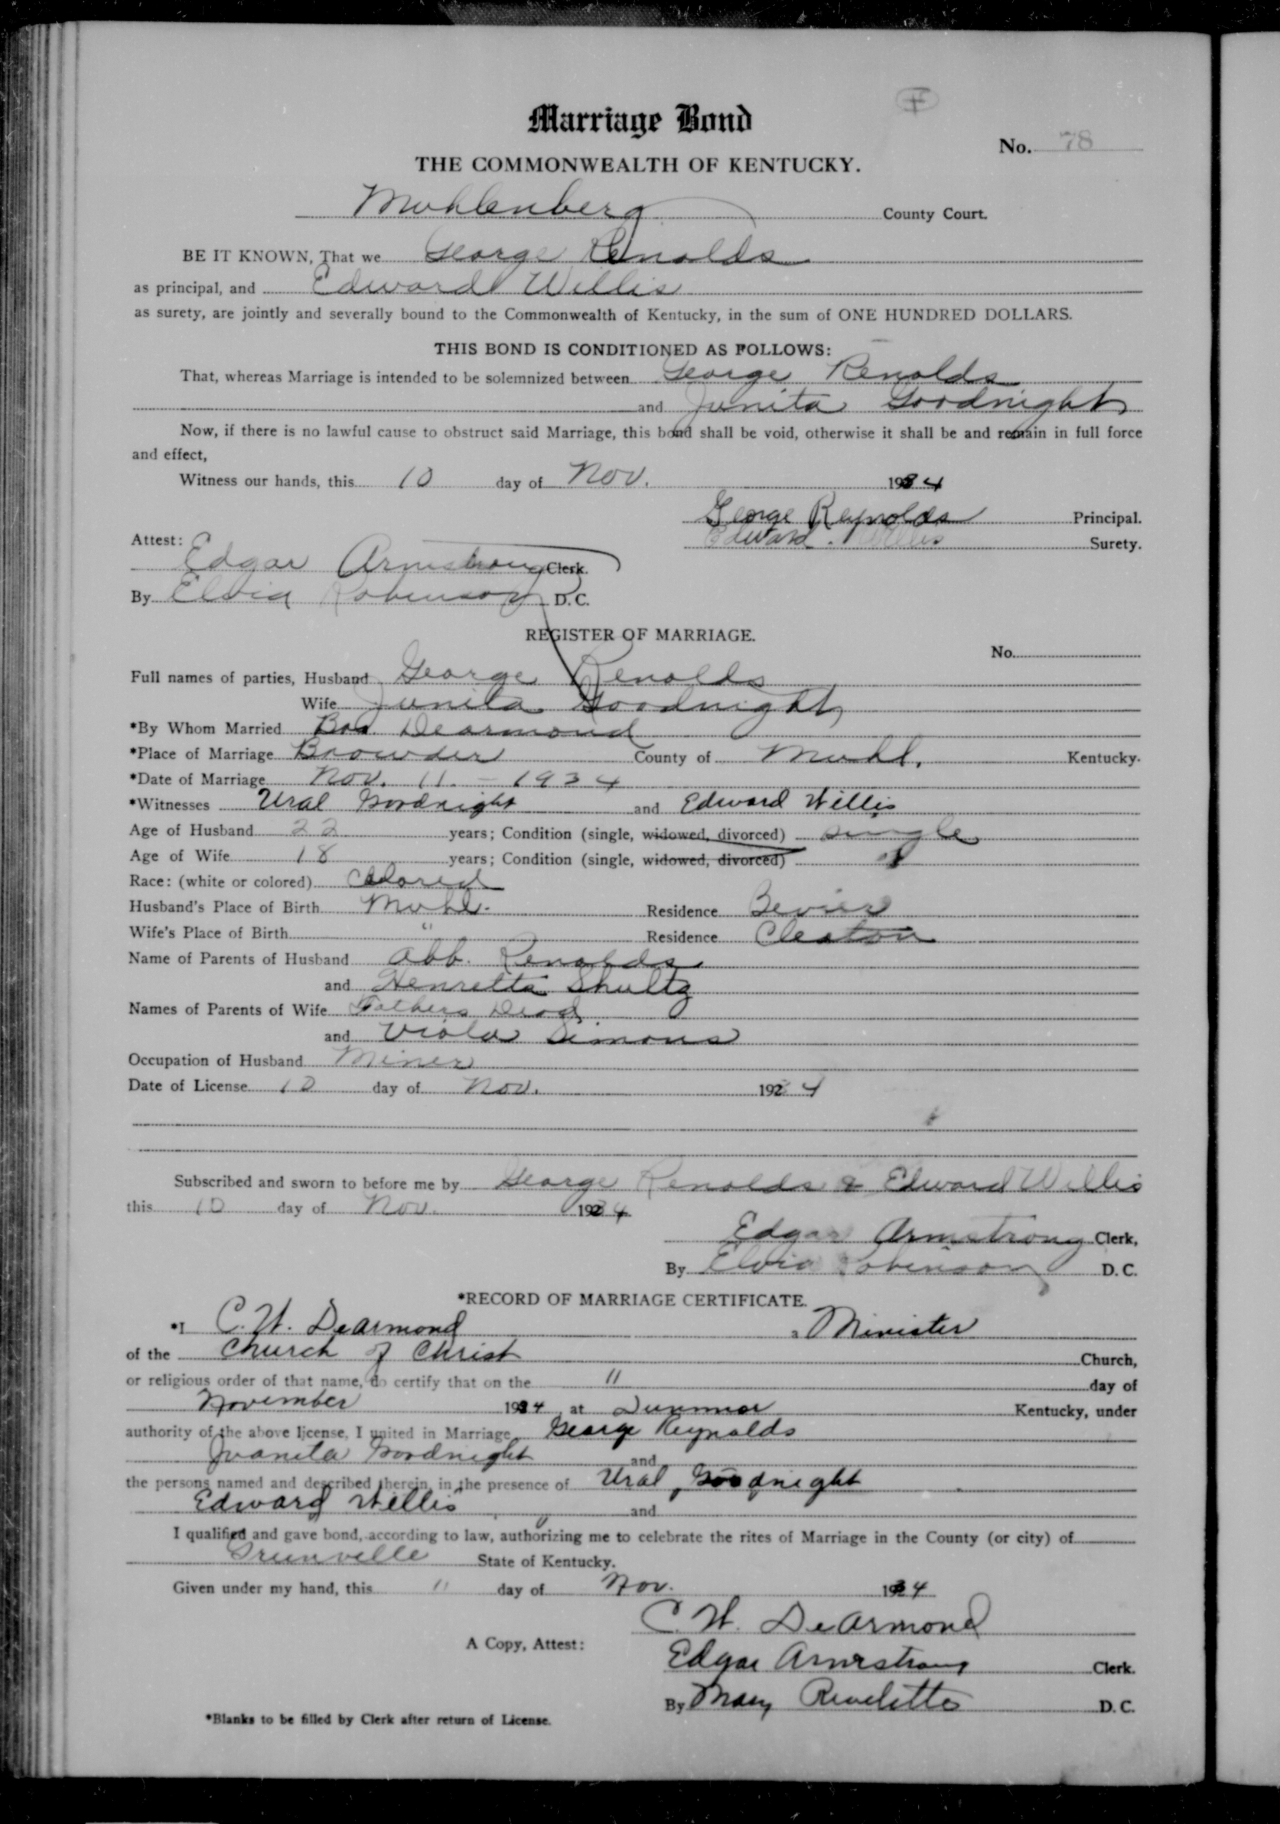 Marriage Bond
No. 78
THE COMMONWEALTH OF KENTUCKY.
Muhlenberg County Court.
BE IT KNOWN, That we George Renolds
as principal, and Edward Willis
as surety, are jointly and severally bound to the Commonwealth of Kentucky, in the sum of ONE HUNDRED DOLLARS.
THIS BOND IS CONDITIONED AS FOLLOWS:
That, whereas Marriage is intended to be solemnized between George Renolds
and Junita Goodnight
Now, if there is no lawful cause to obstruct said Marriage, this bond shall be void, otherwise it shall be and remain in full force
and effect,
Witness our hands, this 10 day of Nov. 1934
George Reynolds Principal.
Edward Willis Surety.
Attest:
Edgar Armstrong Clerk.
By Elvia Robinson D. C.
REGISTER OF MARRIAGE.
No.
Full names of parties, Husband George Renolds
Wife Junita Goodnight
*By Whom Married Bro. Dearmond
*Place of Marriage Browder County of Muhl. Kentucky.
*Date of Marriage Nov. 11 - 1934
*Witnesses Ural Goodnight and Edward Willis
Age of Husband 22 years; Condition (single, widowed, divorced) single
Age of Wife 18 years; Condition (single, widowed, divorced) "
Race: (white or colored) Colored
Husband's Place of Birth Muhl. Residence Bevier
Wife's Place of Birth " Residence Cleaton
Name of Parents of Husband Abb. Renolds
and Henretta Shultz
Names of Parents of Wife Fathers Dead
and Viola Simons
Occupation of Husband Miner
Date of License 10 day of Nov. 1934
Subscribed and sworn to before me by George Renolds & Edward Willis
this 10 day of Nov. 1934
Edgar Armstrong Clerk,
By Elvia Robinson D. C.
*RECORD OF MARRIAGE CERTIFICATE.
*I C. W. DeArmond a Minister
of the Church of Christ Church,
or religious order of that name, do certify that on the 11 day of
November 1934 at Dunmor Kentucky, under
authority of the above license, I united in Marriage George Reynolds
Juanita Goodnight and
the persons named and described therein, in the presence of Ural Goodnight
Edward Willis and
I qualified and gave bond, according to law, authorizing me to celebrate the rites of Marriage in the County (or city) of
Greenville State of Kentucky.
Given under my hand, this 11 day of Nov. 1934
C. W. DeArmond
A Copy, Attest:
Edgar Armstrong Clerk.
By Mary Rivelette D. C.
*Blanks to be filled by Clerk after return of License.